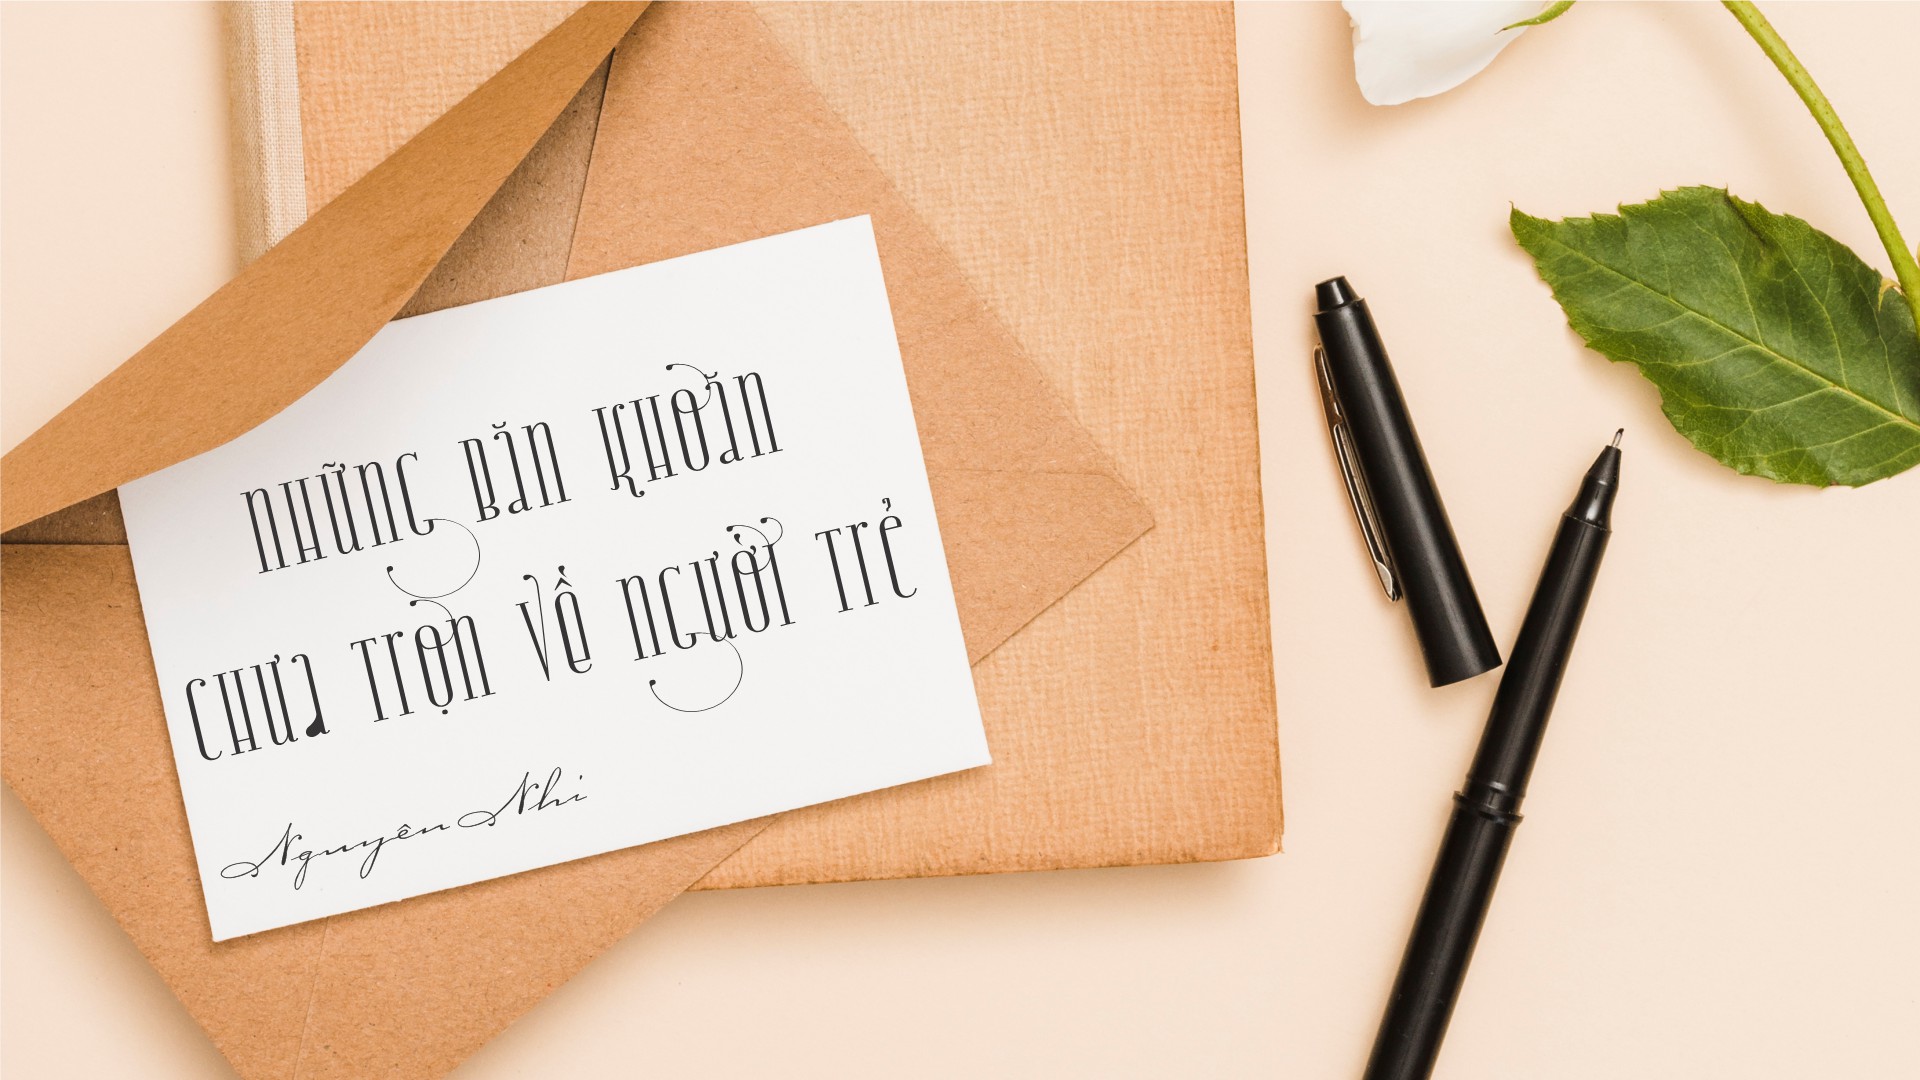 NHỮNG BĂN KHOĂN
CHƯA TRỌN VỀ NGƯỜI TRẺ
Nguyên Nhi